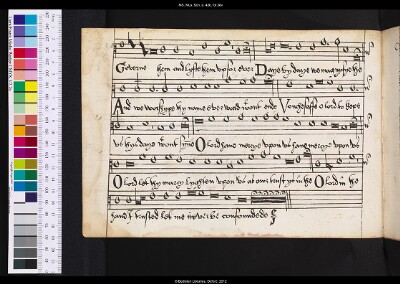 Governe them and lyfte them up for ever Daye by daye we magnyfye the
And we worshype thy name ever world wtout ende Vouchsaffe o lord to kepe
us this daye wtout synne O lord have mercye upon us have mercye upon us
O lord let thy mercy lyghten upon us as our trust ys in the O lord in the
have I trusted let me never be confounded
© Bodleian Libraries, Oxford, 2012